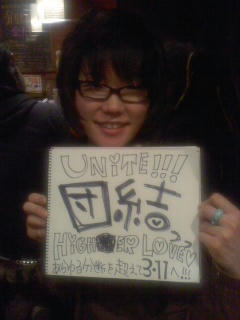 UNiTE!!!
団結
HIGHER LOVE♡
あらゆる分断を超えて3.11へ!!!